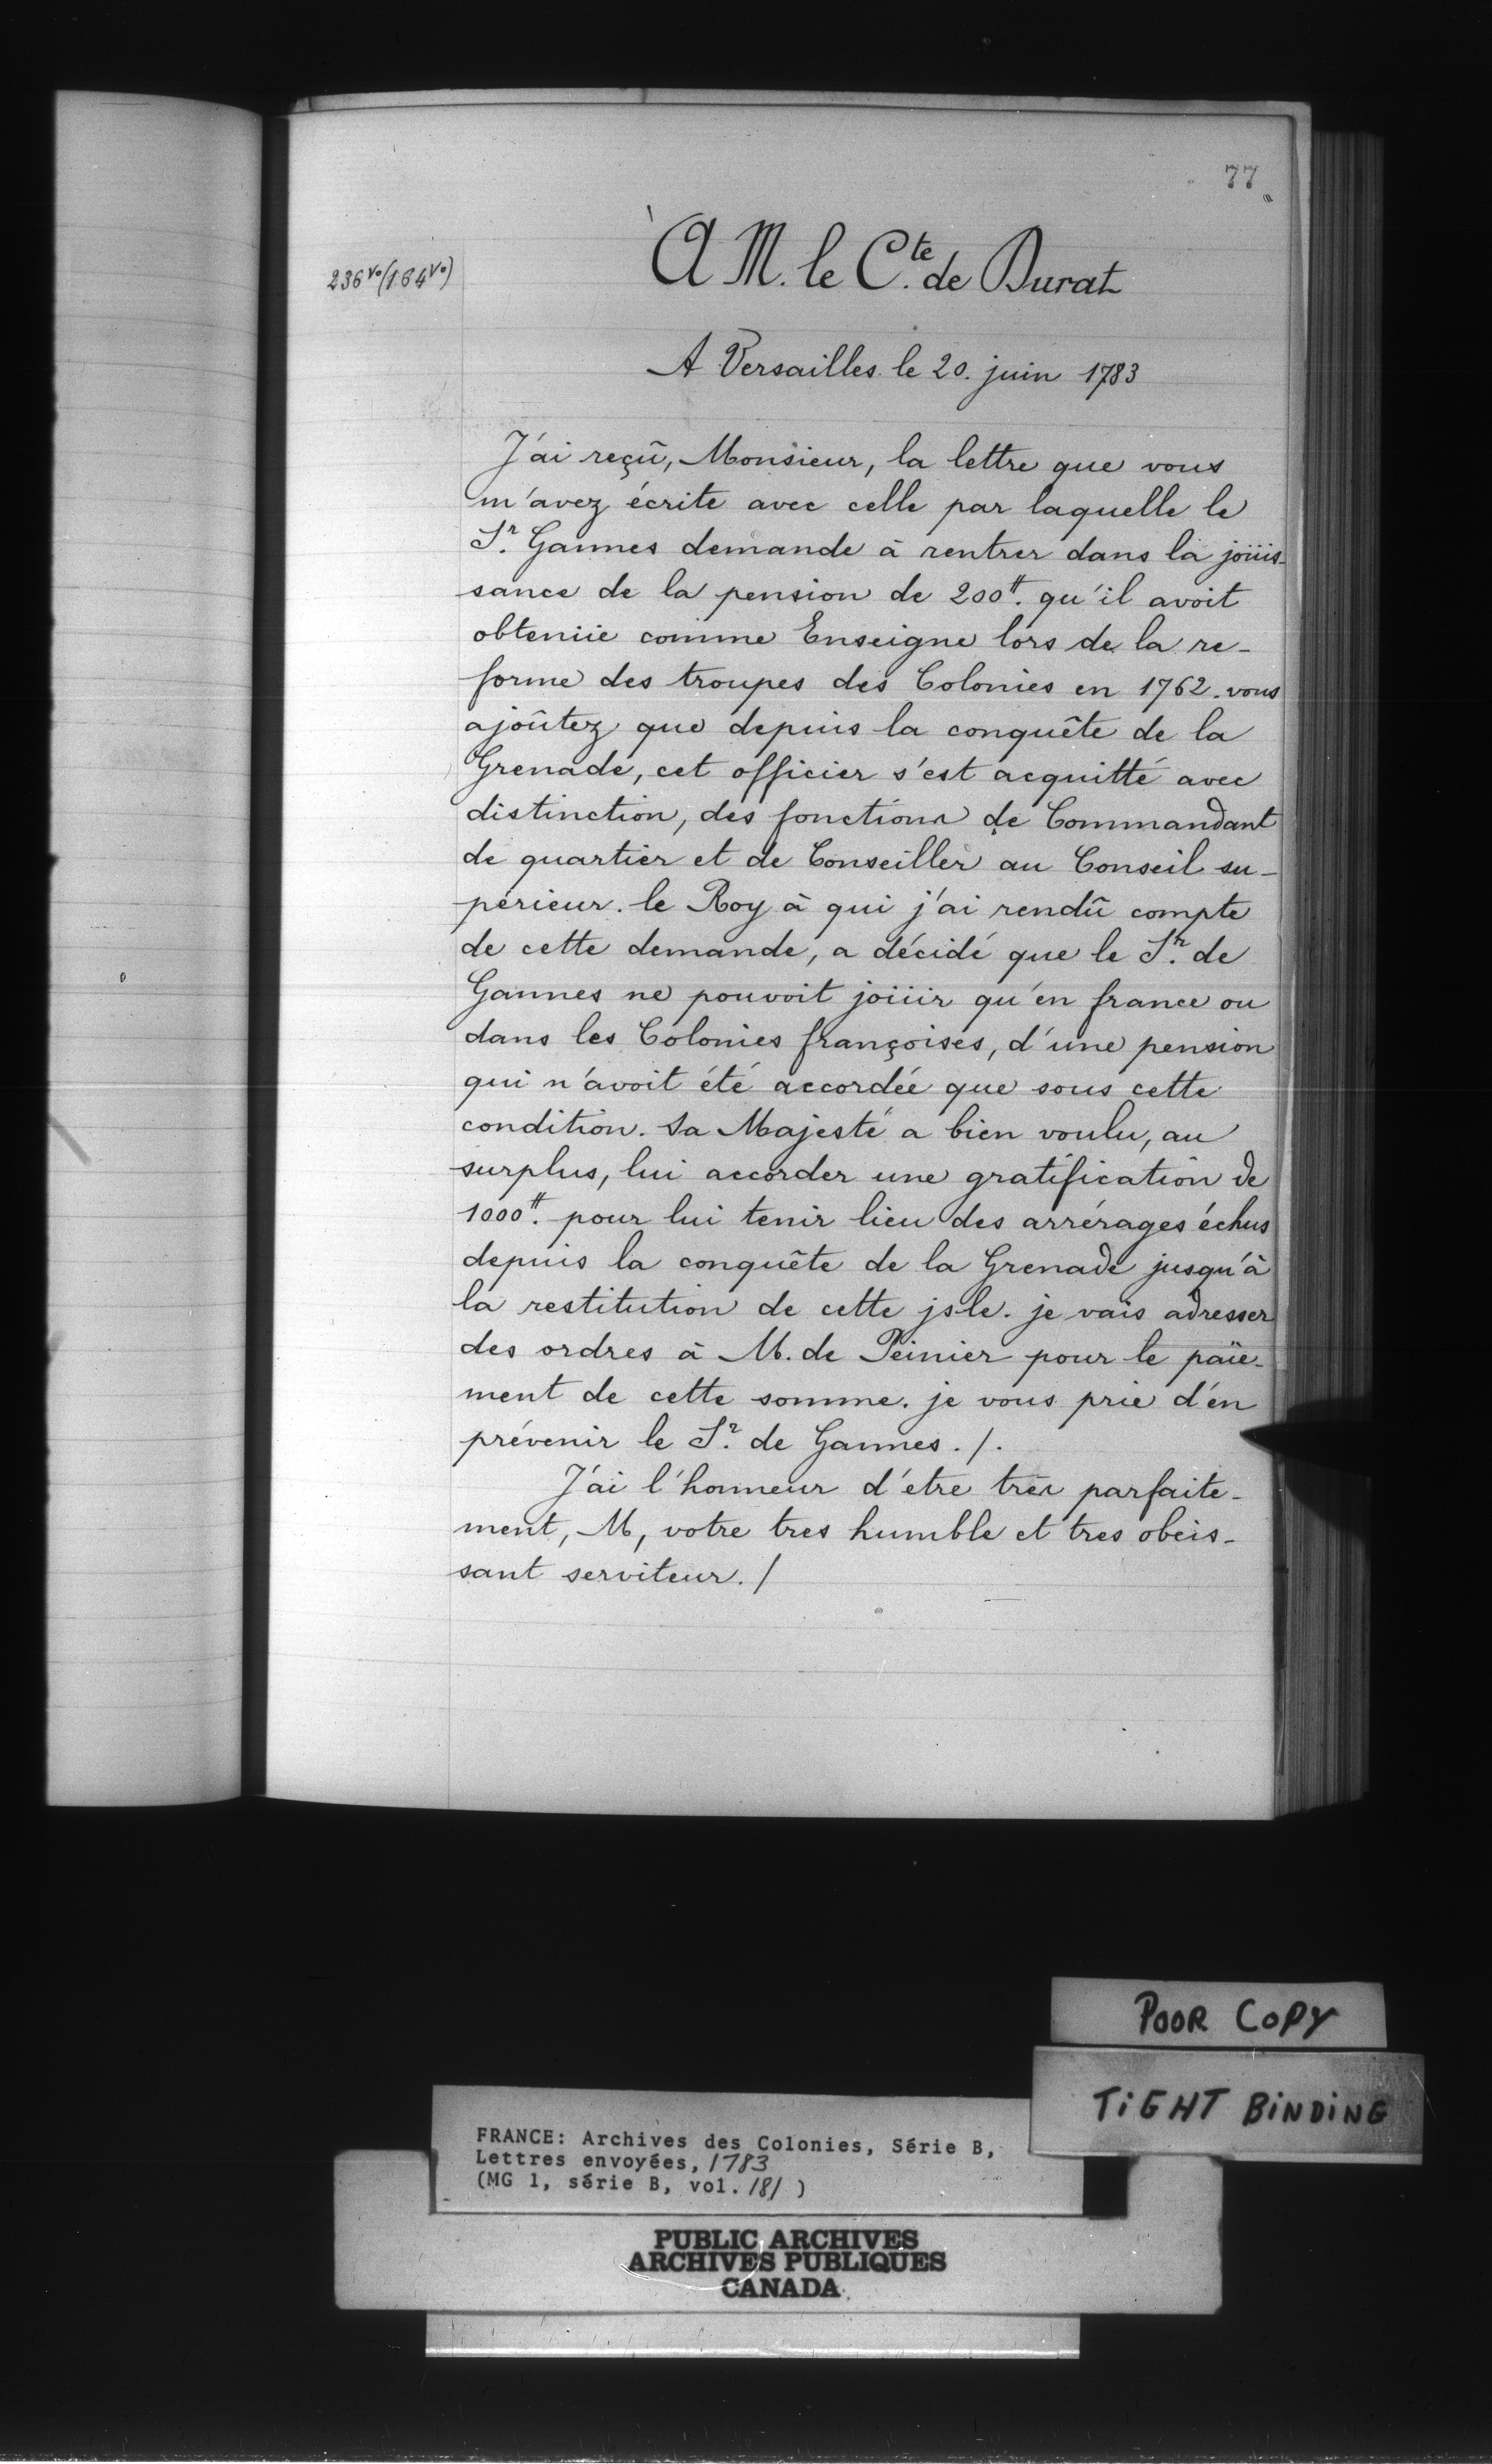 77
236 vo (164 vo)
A M. le Cte. de Durat
A Versailles le 20. juin 1783
J'ai reçû, Monsieur, la lettre que vous
m'avez écrite avec celle par laquelle le
Sr. Gannes demande à rentrer dans la joüis-
sance de la pension de 200₶. qu'il avoit
obtenüe comme Enseigne lors de la re-
forme des troupes des Colonies en 1762. vous
ajoûtez que depuis la conquête de la
Grenade, cet officier s'est acquitté avec
distinction, des fonctions de Commandant
de quartier et de Conseiller au Conseil su-
périeur. le Roy à qui j'ai rendû compte
de cette demande, a décidé que le Sr. de
Gannes ne pouvoit joüir qu'en france ou
dans les Colonies françoises, d'une pension
qui n'avoit été accordée que sous cette
condition. Sa Majesté a bien voulu, au
surplus, lui accorder une gratification de
1000₶. pour lui tenir lieu des arrérages échus
depuis la conquête de la Grenade jusqu'à
la restitution de cette jsle. je vais adresser
des ordres à M. de Peinier pour le païe-
ment de cette somme. je vous prie d'en
prévenir le Sr. de Gannes ./.
J'ai l'honneur d'etre très parfaite-
ment, M, votre tres humble et tres obeis-
sant serviteur. /
POOR COPY
TIGHT BINDING
FRANCE: Archives des Colonies, Série B,
Lettres envoyées, 1783
(MG 1, série B, vol. 181 )
PUBLIC ARCHIVES
ARCHIVES PUBLIQUES
CANADA